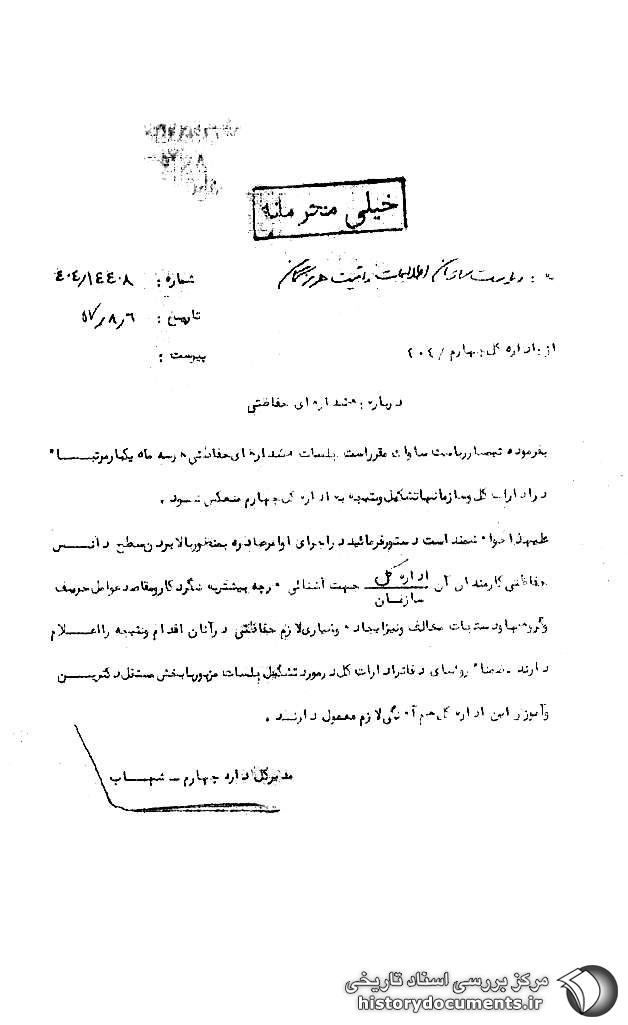 خیلی محرمانه
به : ریاست سازمان اطلاعات و امنیت هرمزگان
شماره : ۴۰۴/۱۴۴۰۸
تاریخ : ۵۷/۸/۶
پیوست :
از : اداره کل چهارم / ۴۰۴
درباره : هشدارهای حفاظتی
بفرموده تیمسار ریاست ساواک مقرر است جلسات هشدارهای حفاظتی هر سه ماه یکبار مرتبا"
در ادارات کل و سازمانها تشکیل و نتیجه به اداره کل چهارم منعکس شود .
علیهذا خواهشمند است دستور فرمائید در اجرای اوامر صادره بمنظور بالا بردن سطح دانش
حفاظتی کارمندان آن اداره کل جهت آشنائی هرچه بیشتر به شگرد کار و مقاصد عوامل حریف
سازمان
و گروهها و دستجات مخالف و نیز ایجاد هوشیاری لازم حفاظتی در آنان اقدام و نتیجه را اعلام
دارند . ضمنا" روسای دفاتر ادارات کل در مورد تشکیل جلسات مزبور با بخش مستقل دکترین
و آموزش این اداره کل هم آهنگی لازم معمول دارند .
مدیر کل اداره چهارم ـ شهاب
مرکز بررسی اسناد تاریخی
historydocuments.ir